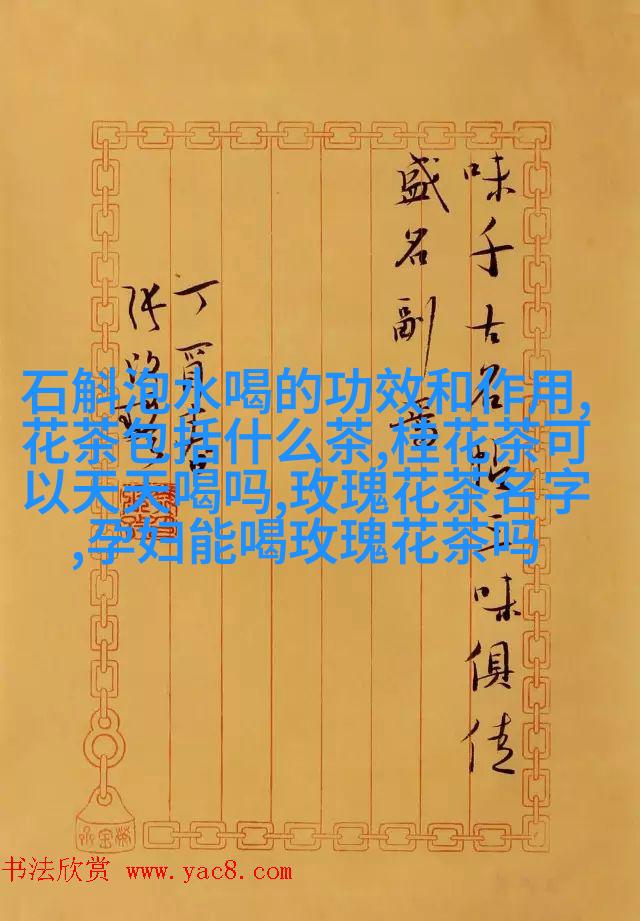 味千古名三味俱佳
盛名副
丁酉春
石斛泡水喝的功效和作用,
花茶包括什么茶,桂花茶可
以天天喝吗,玫瑰花茶名字
,孕妇能喝玫瑰花茶吗
书法欣赏 www.yac8.com